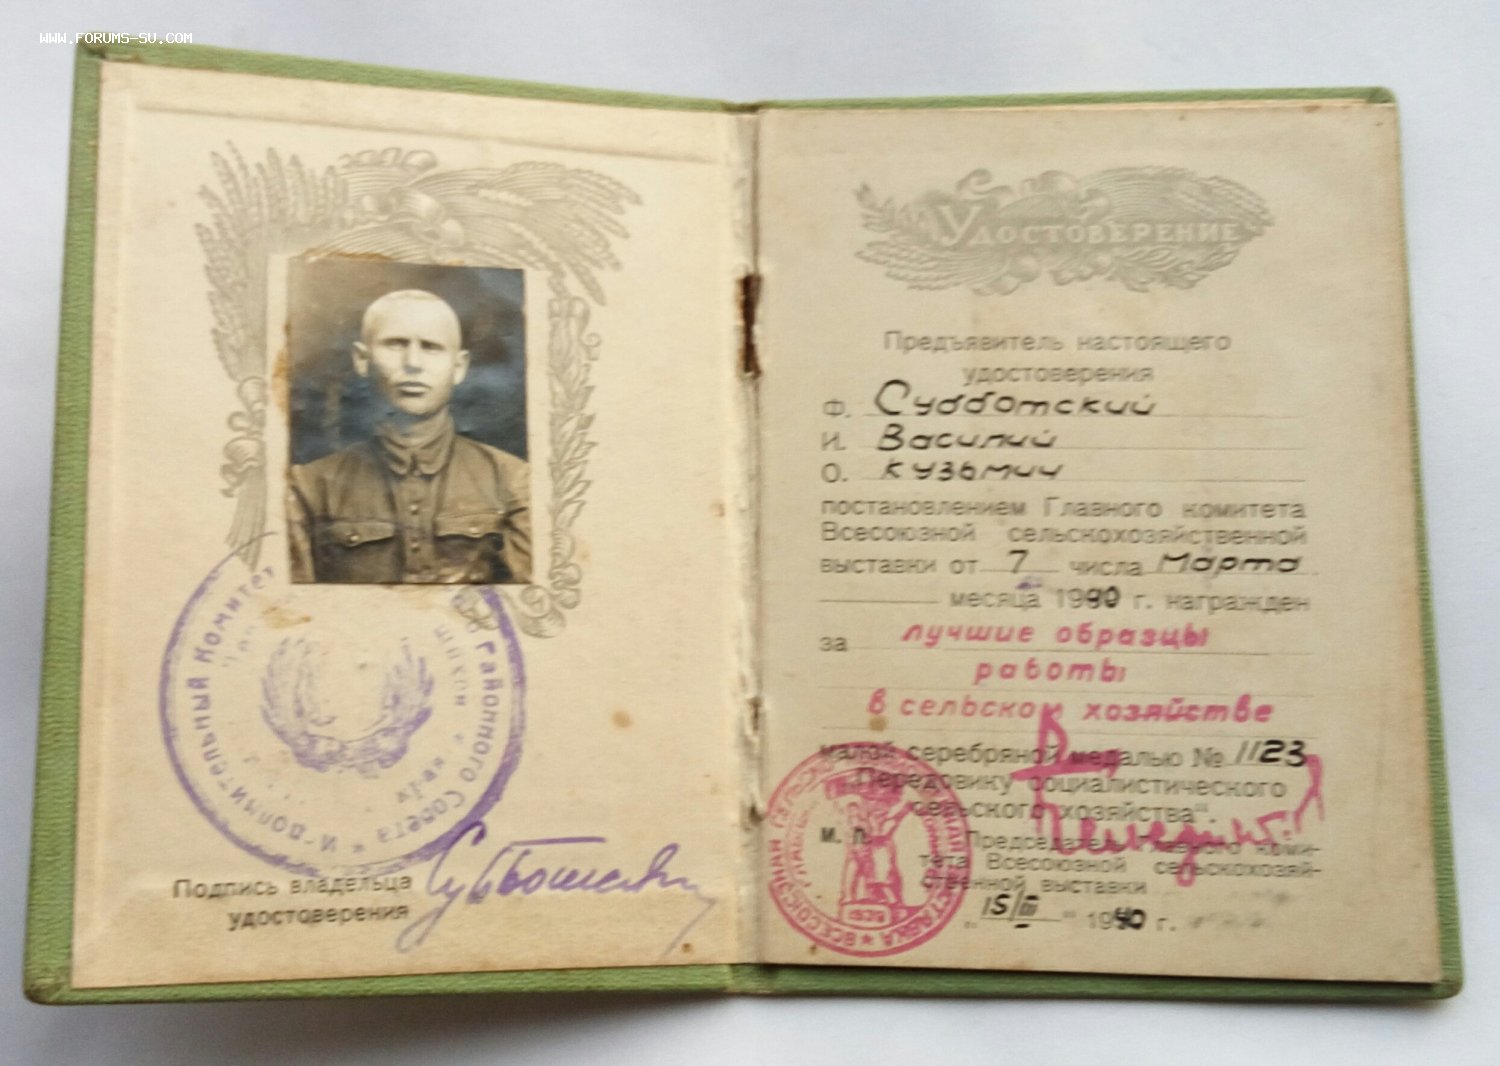 WWW.FORUMS-SU.COM
Исполнительный Комитет
Районного Совета
края
Подпись владельца
удостоверения
Субботский
УДОСТОВЕРЕНИЕ
Предъявитель настоящего
удостоверения
Ф. Субботский
И. Василий
О. Кузьмич
постановлением Главного комитета
Всесоюзной сельскохозяйственной
выставки от 7 числа Марта
месяца 1940 г. награжден
за лучшие образцы
работы
в сельском хозяйстве
малой серебряной медалью № 1123
"Передовику социалистического
сельского хозяйства".
М. П.
Председатель Главного коми-
тета Всесоюзной сельскохозяй-
ственной выставки
"15/III" 1940 г.
ВСЕСОЮЗНАЯ
ВЫСТАВКА
1939